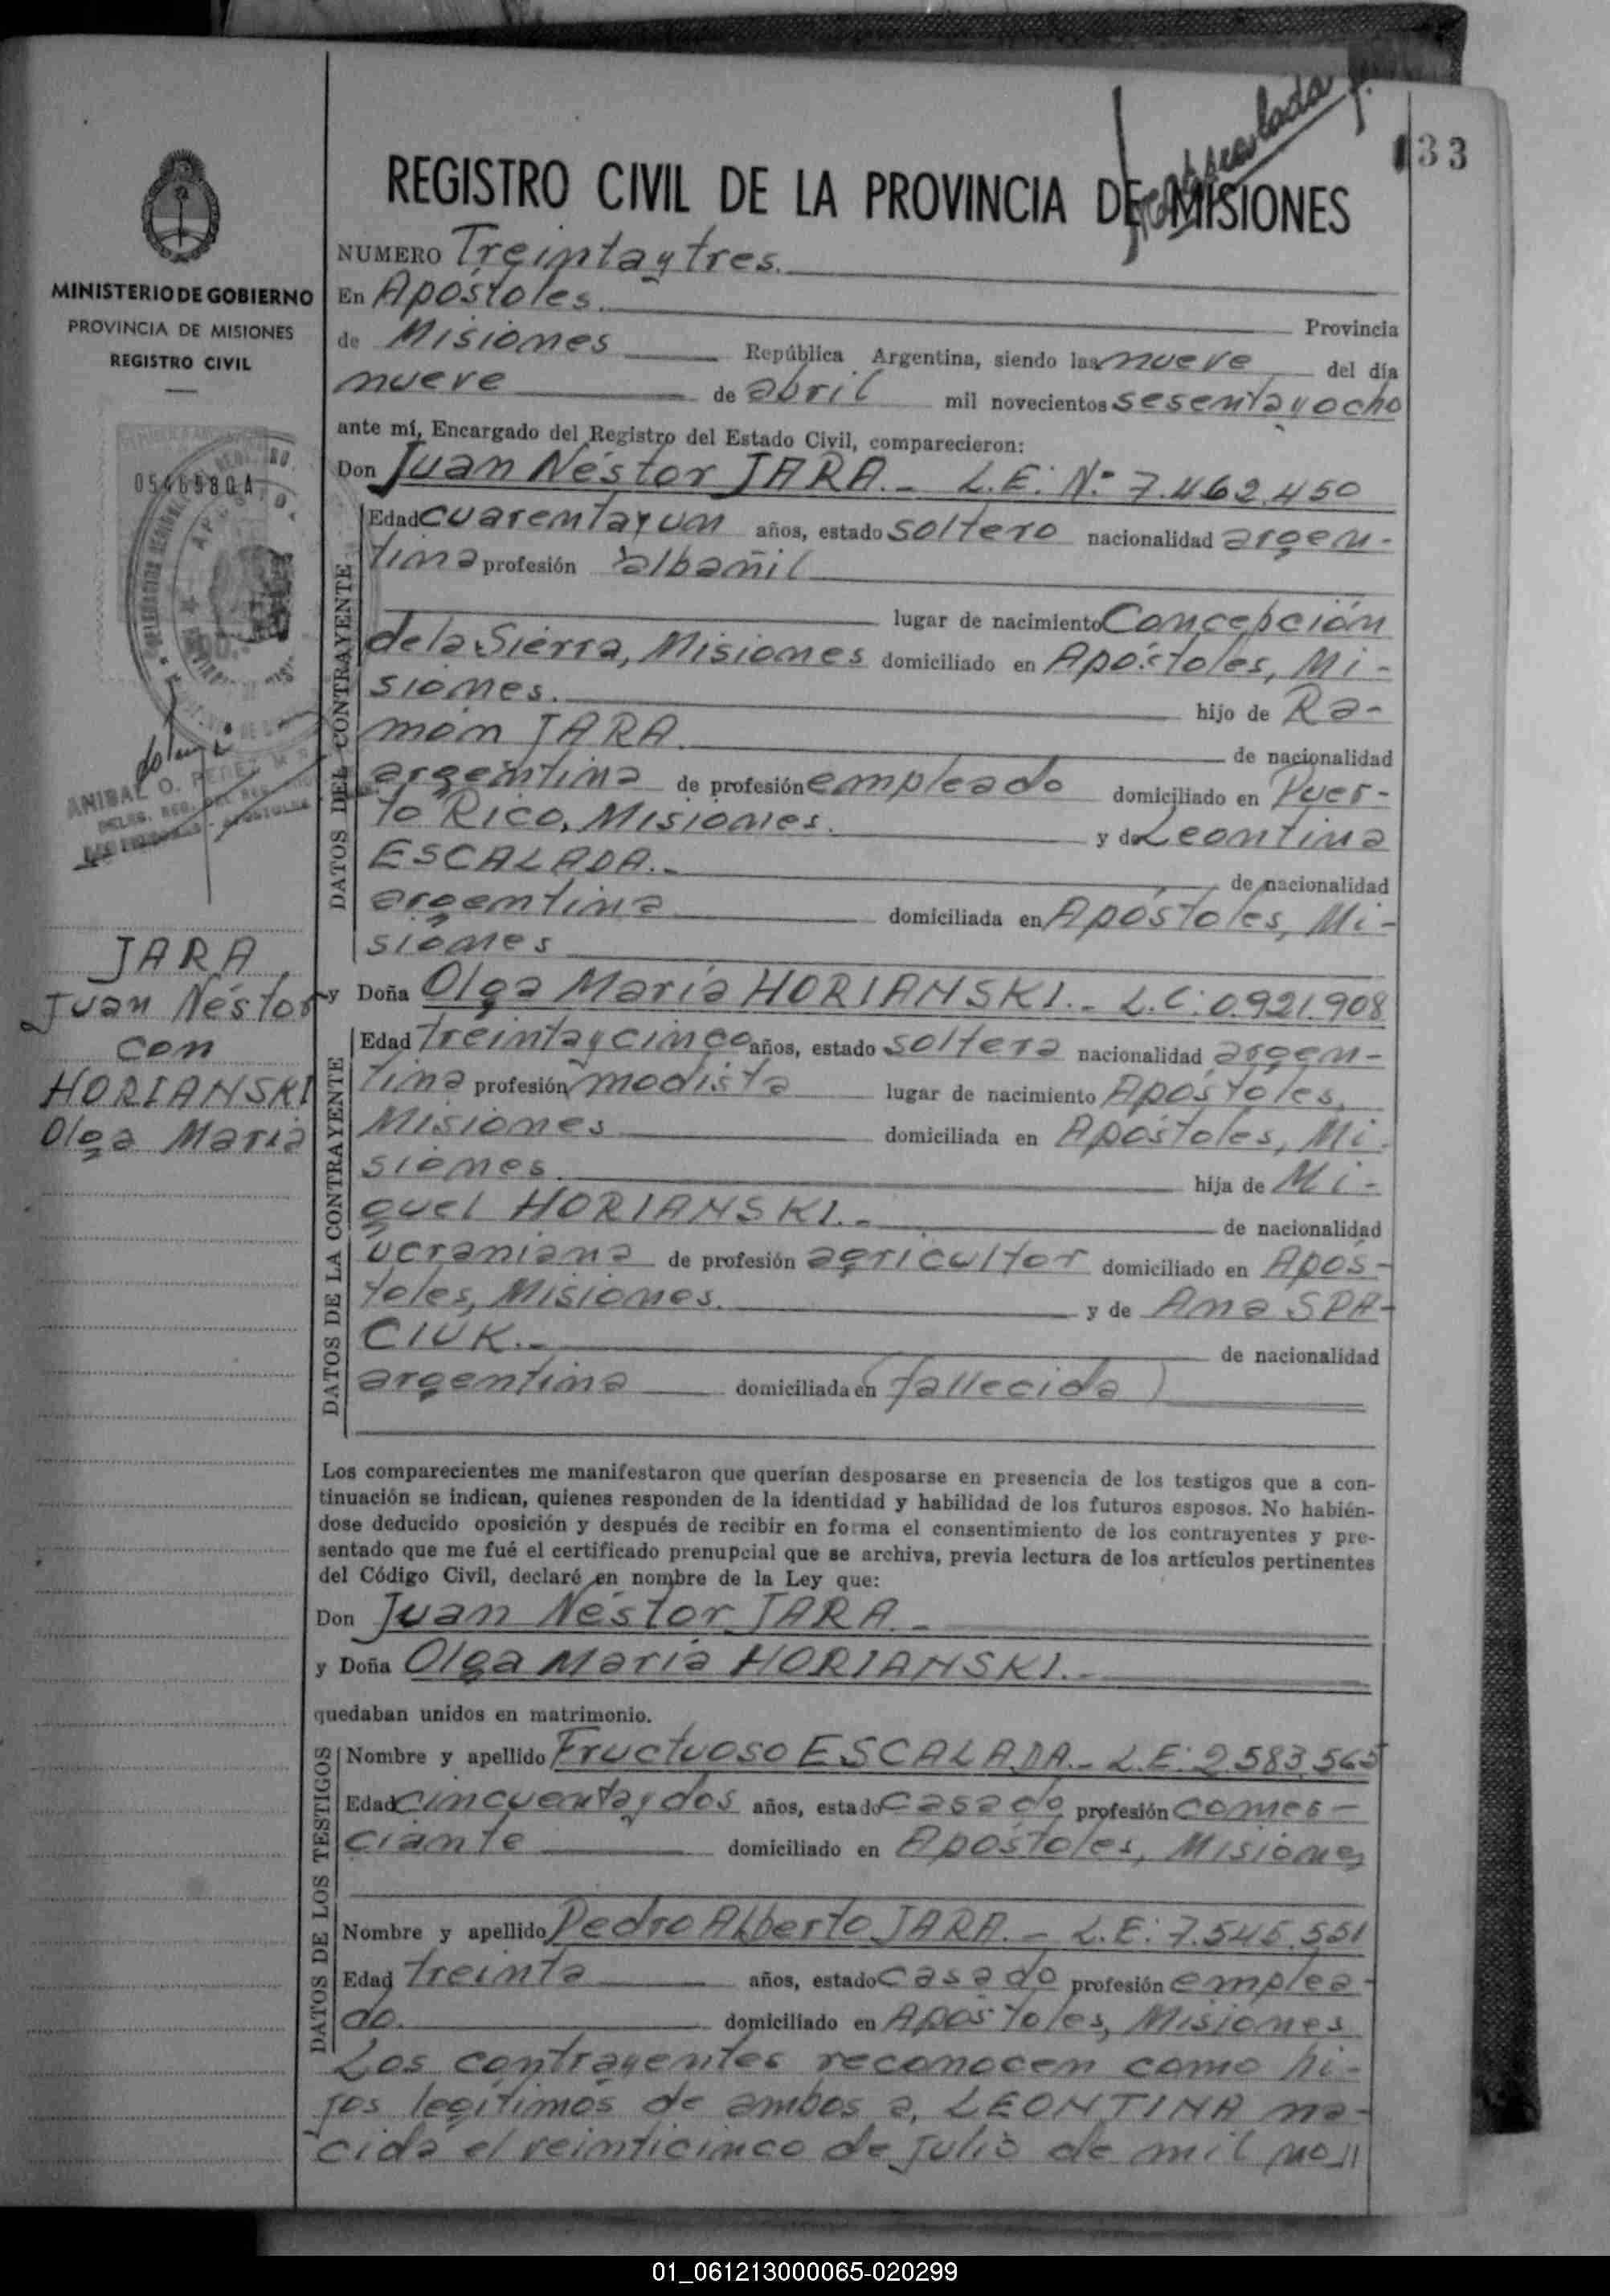 33
REGISTRO CIVIL DE LA PROVINCIA DE MISIONES
MINISTERIO DE GOBIERNO
PROVINCIA DE MISIONES
REGISTRO CIVIL
0546580A
JARA
Juan Néstor
con
HORIANSKI
Olga María
NUMERO Treinta y tres.
En Apóstoles. Provincia
de Misiones República Argentina, siendo las nueve del día
nueve de abril mil novecientos sesenta y ocho
ante mí, Encargado del Registro del Estado Civil, comparecieron:
Don Juan Néstor JARA.- L.E: Nº 7.462.450
DATOS DEL CONTRAYENTE
Edad cuarenta y un años, estado soltero nacionalidad argen-
tina profesión albañil
lugar de nacimiento Concepción
de la Sierra, Misiones domiciliado en Apóstoles, Mi-
siones. hijo de Ra-
món JARA. de nacionalidad
argentina de profesión empleado domiciliado en Puer-
to Rico, Misiones. y de Leontina
ESCALADA.- de nacionalidad
argentina domiciliada en Apóstoles, Mi-
siones
y Doña Olga María HORIANSKI.- L.C: 0.921.908
DATOS DE LA CONTRAYENTE
Edad treinta y cinco años, estado soltera nacionalidad argen-
tina profesión modista lugar de nacimiento Apóstoles,
Misiones domiciliada en Apóstoles, Mi-
siones. hija de Mi-
guel HORIANSKI.- de nacionalidad
ucraniana de profesión agricultor domiciliado en Após-
toles, Misiones. y de Ana SPA-
CIUK.- de nacionalidad
argentina domiciliada en (fallecida)
Los comparecientes me manifestaron que querían desposarse en presencia de los testigos que a con-
tinuación se indican, quienes responden de la identidad y habilidad de los futuros esposos. No habién-
dose deducido oposición y después de recibir en forma el consentimiento de los contrayentes y pre-
sentado que me fué el certificado prenupcial que se archiva, previa lectura de los artículos pertinentes
del Código Civil, declaré en nombre de la Ley que:
Don Juan Néstor JARA.-
y Doña Olga María HORIANSKI.-
quedaban unidos en matrimonio.
DATOS DE LOS TESTIGOS
Nombre y apellido Fructuoso ESCALADA.- L.E: 2.583.565
Edad cincuenta y dos años, estado casado profesión comer-
ciante domiciliado en Apóstoles, Misiones
Nombre y apellido Pedro Alberto JARA.- L.E: 7.545.551
Edad treinta años, estado casado profesión emplea-
do. domiciliado en Apóstoles, Misiones
Los contrayentes reconocen como hi-
jos legítimos de ambos a, LEONTINA na-
cida el veinticinco de julio de mil no//
01_061213000065-020299